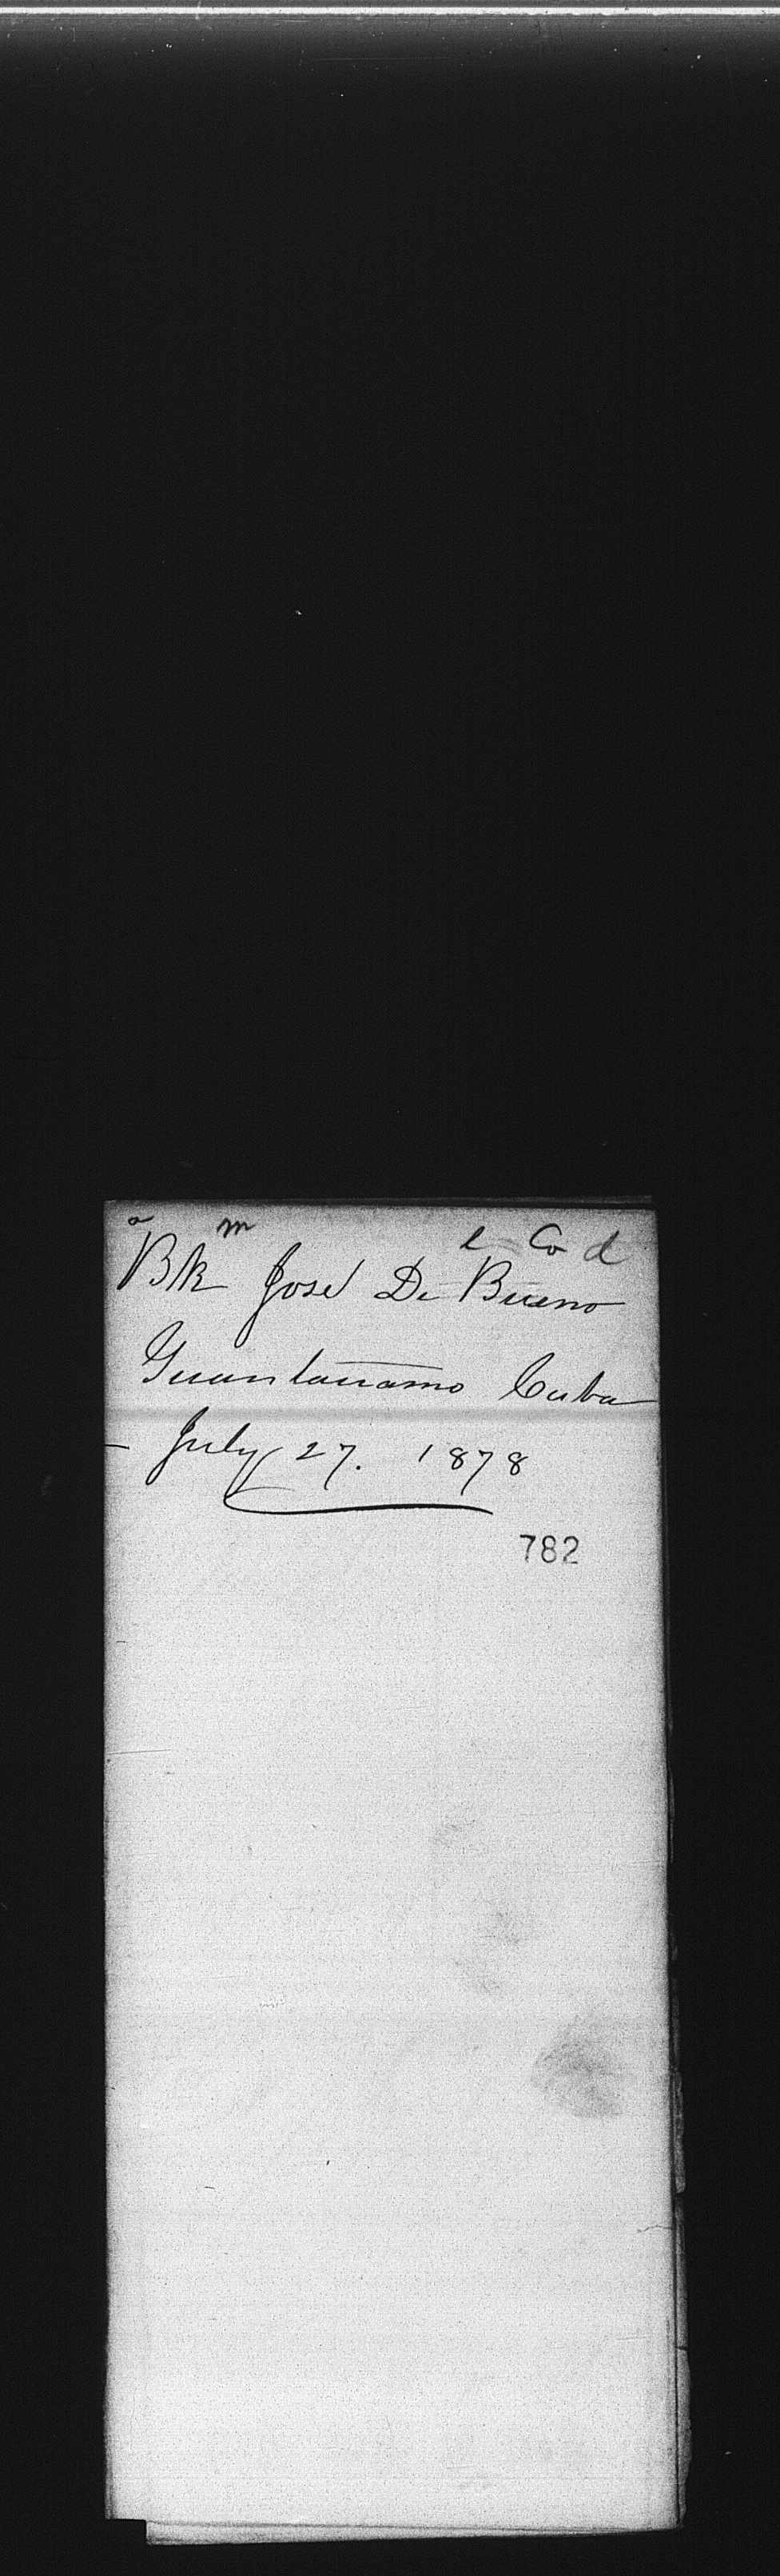 a m e Co d
Bk José De Bueno
Guantanamo Cuba
July 27. 1878
782